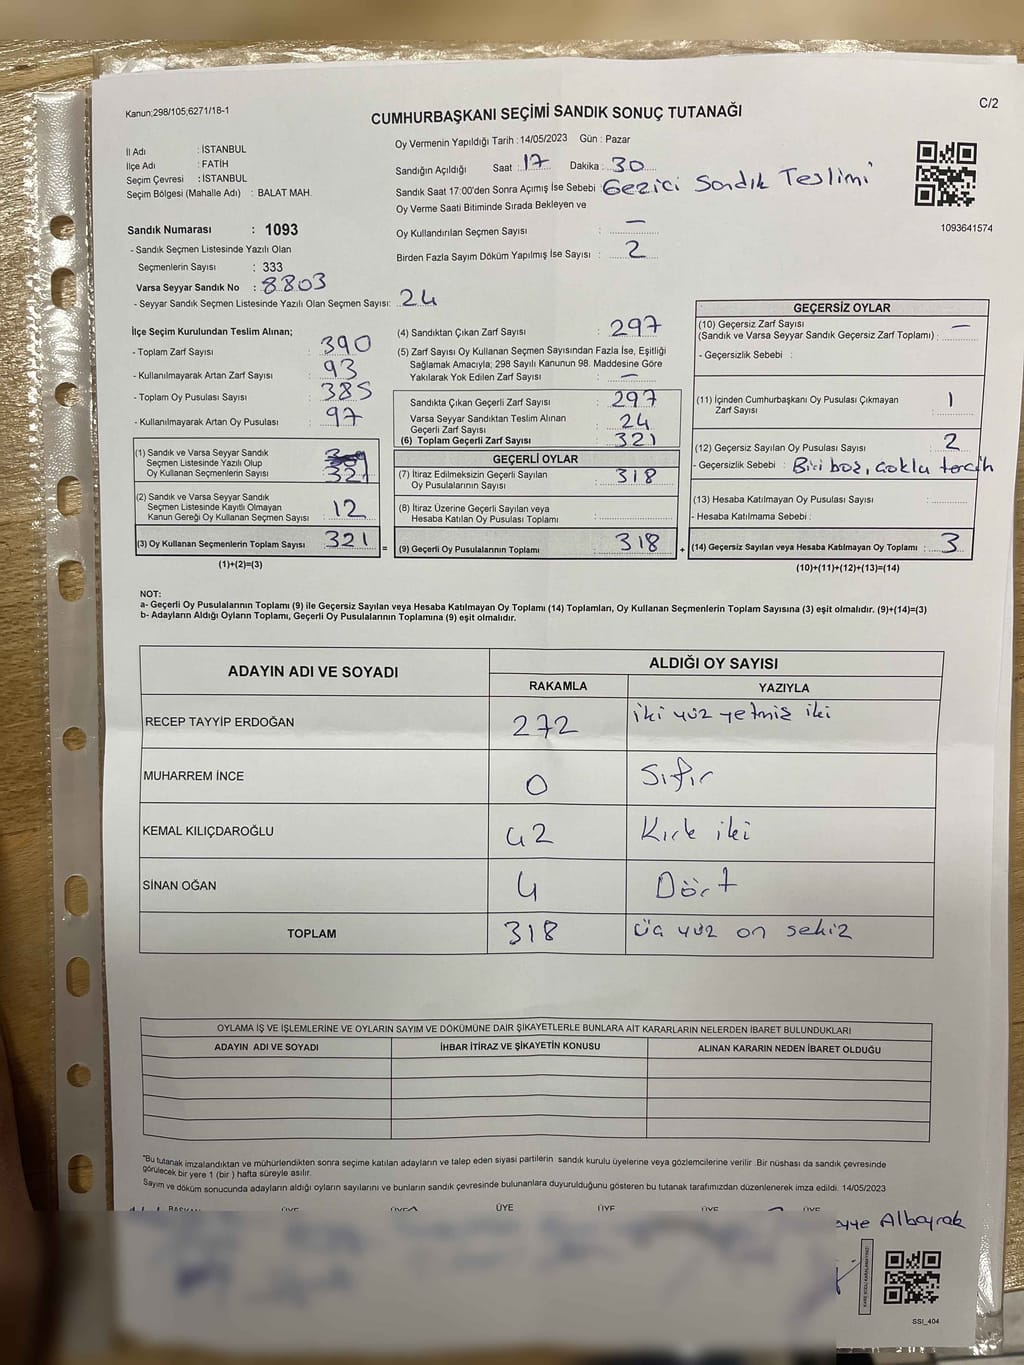 Kanun;298/105;6271/18-1
C/2
CUMHURBAŞKANI SEÇİMİ SANDIK SONUÇ TUTANAĞI
İl Adı : İSTANBUL
İlçe Adı : FATİH
Seçim Çevresi : İSTANBUL
Seçim Bölgesi (Mahalle Adı) : BALAT MAH.
Oy Vermenin Yapıldığı Tarih : 14/05/2023 Gün : Pazar
Sandığın Açıldığı Saat : 17 Dakika : 30
Sandık Saat 17:00'den Sonra Açımış İse Sebebi : Gezici Sandık Teslimi
Oy Verme Saati Bitiminde Sırada Bekleyen ve
Oy Kullandırılan Seçmen Sayısı : —
Birden Fazla Sayım Döküm Yapılmış İse Sayısı : 2
1093641574
Sandık Numarası : 1093
- Sandık Seçmen Listesinde Yazılı Olan
Seçmenlerin Sayısı : 333
Varsa Seyyar Sandık No : 8803
- Seyyar Sandık Seçmen Listesinde Yazılı Olan Seçmen Sayısı: 24
İlçe Seçim Kurulundan Teslim Alınan;
- Toplam Zarf Sayısı : 390
- Kullanılmayarak Artan Zarf Sayısı : 93
- Toplam Oy Pusulası Sayısı : 385
- Kullanılmayarak Artan Oy Pusulası : 97
(1) Sandık ve Varsa Seyyar Sandık
Seçmen Listesinde Yazılı Olup
Oy Kullanan Seçmenlerin Sayısı
(2) Sandık ve Varsa Seyyar Sandık
Seçmen Listesinde Kayıtlı Olmayan
Kanun Gereği Oy Kullanan Seçmen Sayısı : 12
(3) Oy Kullanan Seçmenlerin Toplam Sayısı : 321
(1)+(2)=(3)
(4) Sandıktan Çıkan Zarf Sayısı : 297
(5) Zarf Sayısı Oy Kullanan Seçmen Sayısından Fazla İse, Eşitliği
Sağlamak Amacıyla; 298 Sayılı Kanunun 98. Maddesine Göre
Yakılarak Yok Edilen Zarf Sayısı : —
Sandıkta Çıkan Geçerli Zarf Sayısı : 297
Varsa Seyyar Sandıktan Teslim Alınan
Geçerli Zarf Sayısı : 24
(6) Toplam Geçerli Zarf Sayısı : 321
GEÇERLİ OYLAR
(7) İtiraz Edilmeksizin Geçerli Sayılan
Oy Pusulalarının Sayısı : 318
(8) İtiraz Üzerine Geçerli Sayılan veya
Hesaba Katılan Oy Pusulası Toplamı :
= (9) Geçerli Oy Pusulalarının Toplamı : 318 +
GEÇERSİZ OYLAR
(10) Geçersiz Zarf Sayısı
(Sandık ve Varsa Seyyar Sandık Geçersiz Zarf Toplamı) : —
- Geçersizlik Sebebi :
(11) İçinden Cumhurbaşkanı Oy Pusulası Çıkmayan
Zarf Sayısı : 1
(12) Geçersiz Sayılan Oy Pusulası Sayısı : 2
- Geçersizlik Sebebi : Biri boş, çoklu tercih
(13) Hesaba Katılmayan Oy Pusulası Sayısı :
- Hesaba Katılmama Sebebi :
(14) Geçersiz Sayılan veya Hesaba Katılmayan Oy Toplamı : 3
(10)+(11)+(12)+(13)=(14)
NOT:
a- Geçerli Oy Pusulalarının Toplamı (9) ile Geçersiz Sayılan veya Hesaba Katılmayan Oy Toplamı (14) Toplamları, Oy Kullanan Seçmenlerin Toplam Sayısına (3) eşit olmalıdır. (9)+(14)=(3)
b- Adayların Aldığı Oyların Toplamı, Geçerli Oy Pusulalarının Toplamına (9) eşit olmalıdır.
ADAYIN ADI VE SOYADI ALDIĞI OY SAYISI
RAKAMLA YAZIYLA
RECEP TAYYİP ERDOĞAN 272 iki yüz yetmiş iki
MUHARREM İNCE 0 Sıfır
KEMAL KILIÇDAROĞLU 42 Kırk iki
SİNAN OĞAN 4 Dört
TOPLAM 318 üç yüz on sekiz
OYLAMA İŞ VE İŞLEMLERİNE VE OYLARIN SAYIM VE DÖKÜMÜNE DAİR ŞİKAYETLERLE BUNLARA AİT KARARLARIN NELERDEN İBARET BULUNDUKLARI
ADAYIN ADI VE SOYADI İHBAR İTİRAZ VE ŞİKAYETİN KONUSU ALINAN KARARIN NEDEN İBARET OLDUĞU
"Bu tutanak imzalandıktan ve mühürlendikten sonra seçime katılan adayların ve talep eden siyasi partilerin sandık kurulu üyelerine veya gözlemcilerine verilir .Bir nüshası da sandık çevresinde
görülecek bir yere 1 (bir ) hafta süreyle asılır.
Sayım ve döküm sonucunda adayların aldığı oyların sayılarını ve bunların sandık çevresinde bulunanlara duyurulduğunu gösteren bu tutanak tarafımızdan düzenlenerek imza edildi. 14/05/2023
BAŞKAN ÜYE ÜYE ÜYE ÜYE ÜYE ÜYE
Albayrak
SSİ_404